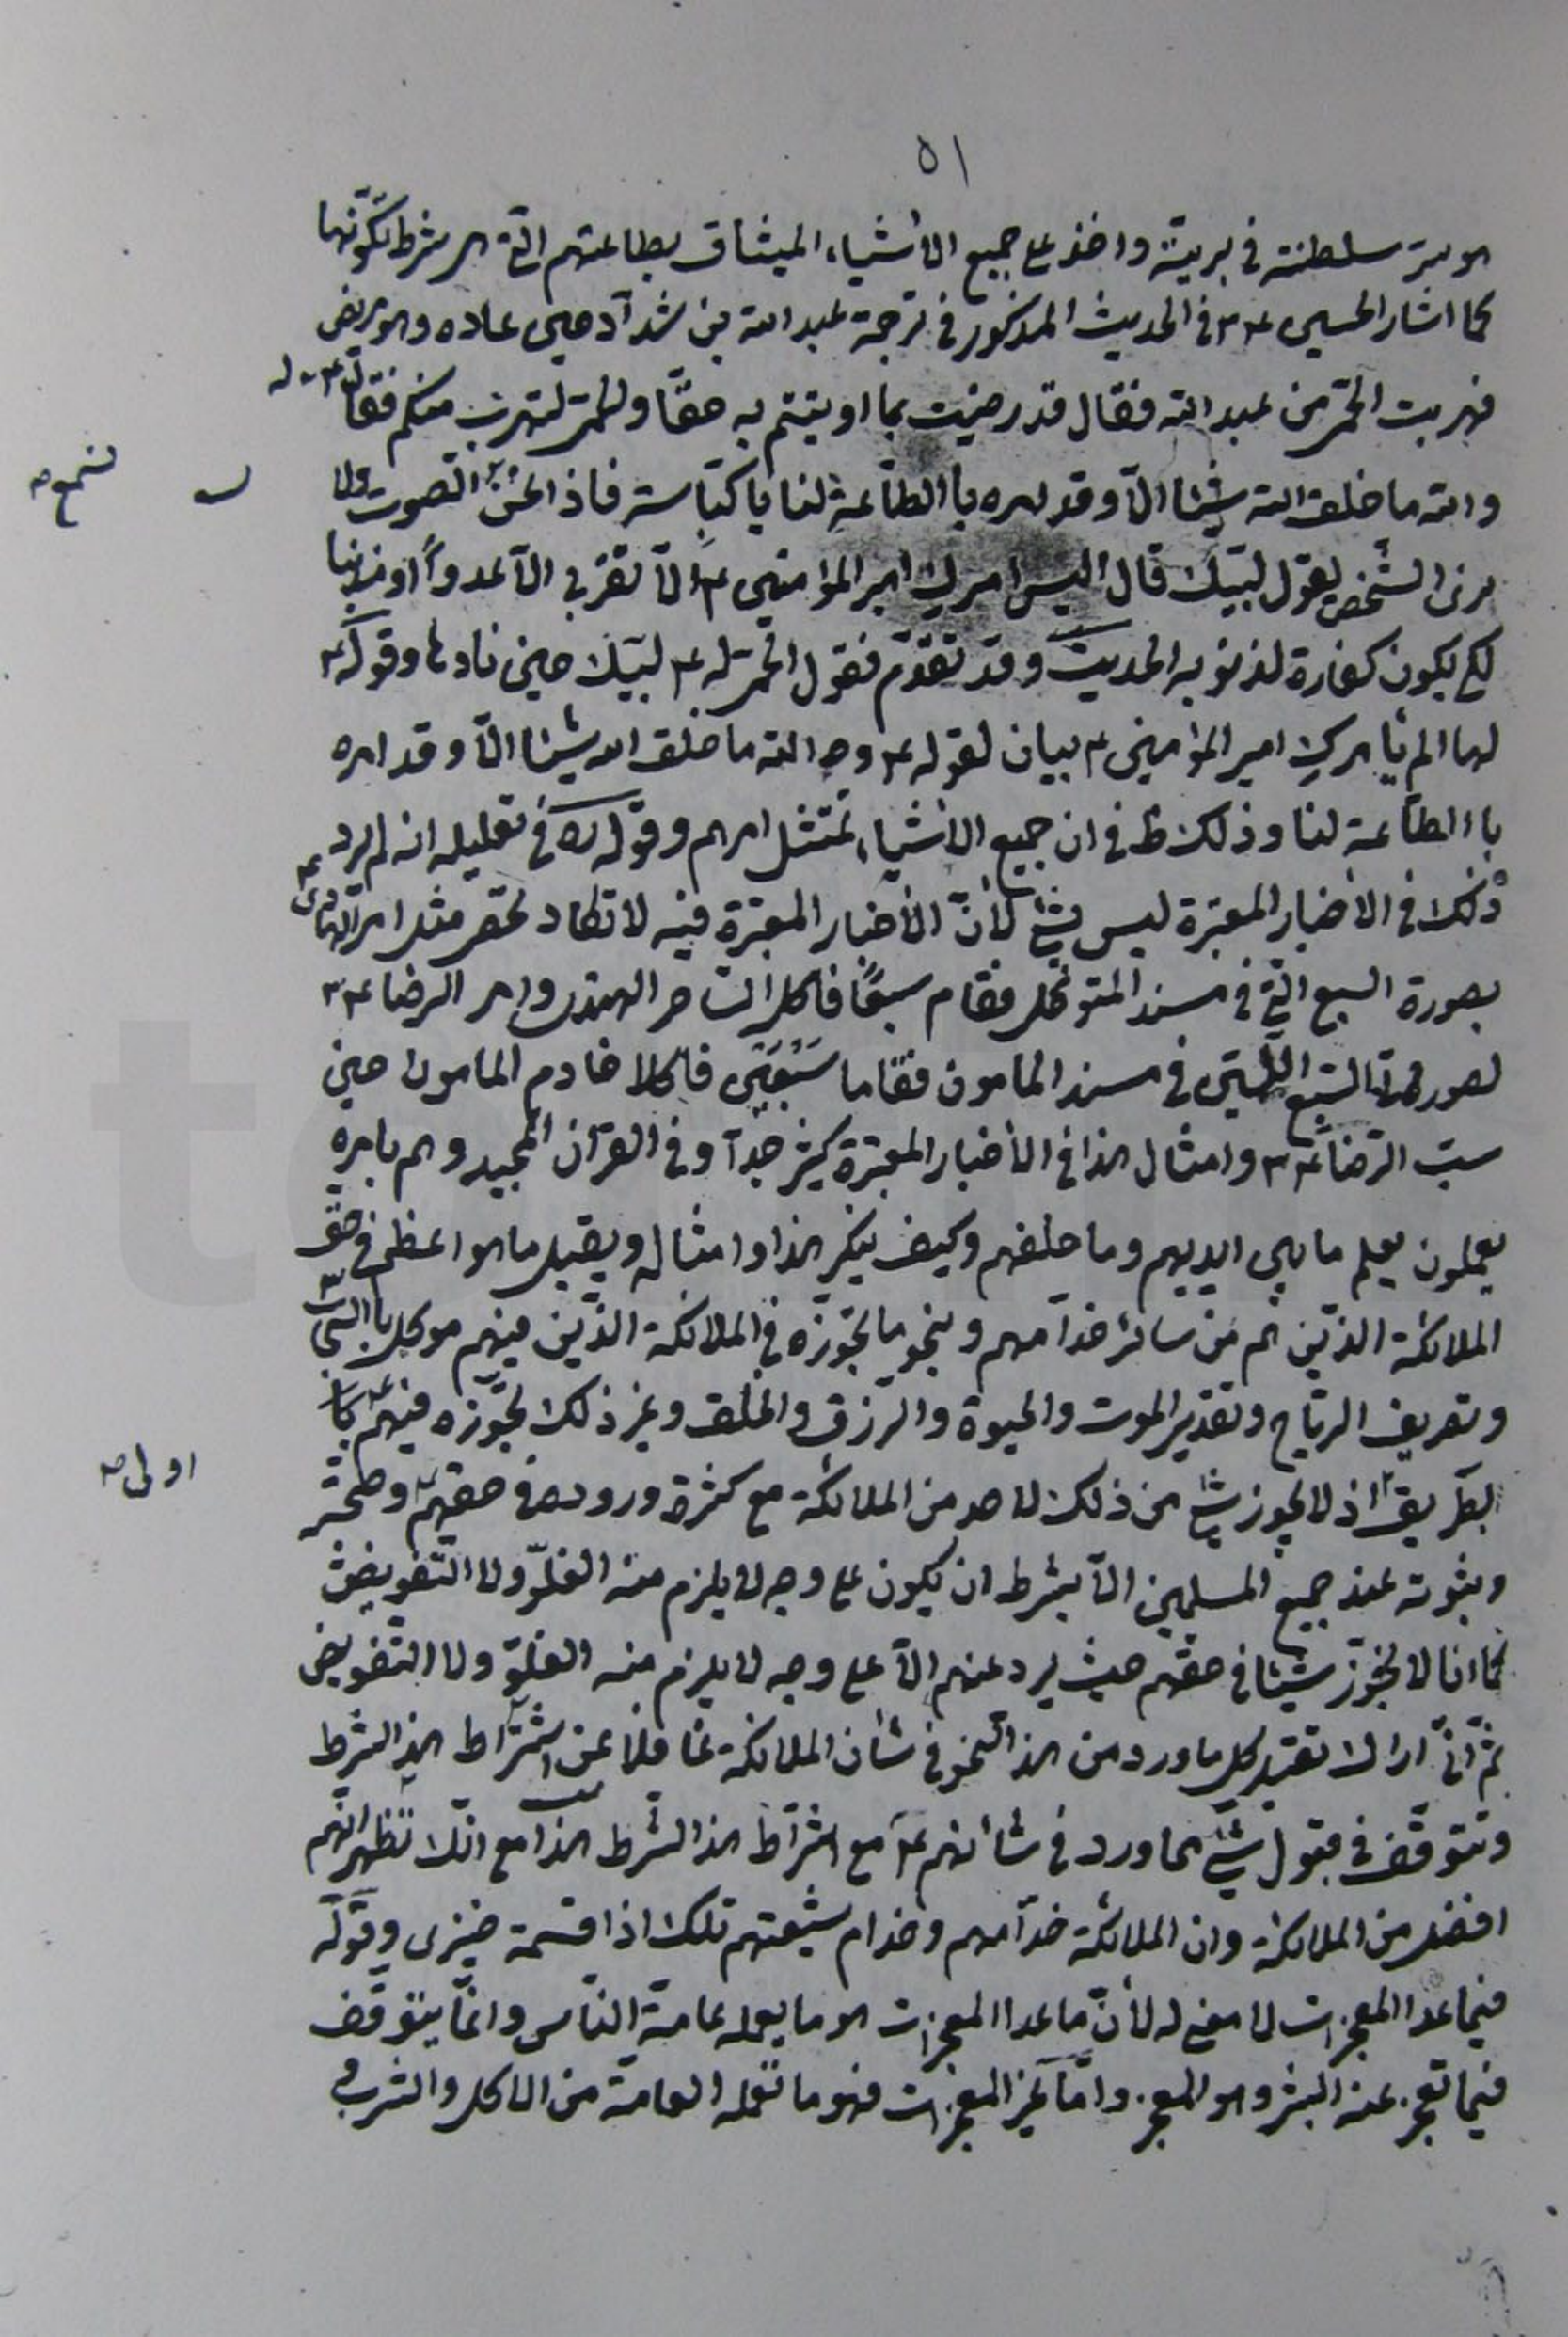 ٥١
هو سر سلطنته في بريته واخذ على جميع الأشياء الميثاق بطاعتهم التي هي شرط تكونها
كما اشار الحسين ع في الحديث المذكور في ترجمة عبد الله بن شداد حين عاده وهو مريض
فهربت الحمى من عبد الله فقال قد رضيت بما اوتيتم به حقا والحمى لتهرب منكم فقال ع له
والله ما خلق الله شيئا الا وقد امره با الطاعة لنا يا كباسة فاذا نحن نسمع الصوت ولا
نرى الشخص يقول لبيك قال اليس امرك امير المؤمنين ع الا تقربي الا عدوا او مذنبا
لكي يكون كفارة لذنوبه الحديث وقد تقدم فقول الحمى له ع لبيك حين ناداها وقوله ع
لها الم يأمرك امير المؤمنين ع بيان لقوله ع والله ما خلق الله شيئا الا وقد امره
با الطاعة لنا وذلك ظ في ان جميع الاشياء تمتثل امرهم وقوله ره في تعليله انه لم يرد
ذلك في الأخبار المعتبرة ليس بشئ لأن الأخبار المعتبرة فيه لا تكاد تحصر مثل امر الهادي ع
بصورة السبع التي في مسند المتوكل فقام سبعا فاكل الساحر الهندي وامر الرضا ع
لصورتي السبع اللتين في مسند المامون فقاما سبعين فاكلا خادم المامون حين
سب الرضا ع وامثال هذا في الأخبار المعتبرة كثير جدا وفي القرآن المجيد وهم بامره
يعملون يعلم ما بين ايديهم وما خلفهم وكيف ينكر هذا وامثاله ويقبل ما هو اعظم في حق
الملائكة الذين هم من سائر خدامهم وبنحو ما نجوزه في الملائكة الذين منهم موكل با السحاب
وتصريف الرياح وتقدير الموت والحيوة والرزق والخلق وغير ذلك نجوزه فيهم ع با
لطريق اولى اذ لا يجوز شئ من ذلك لاحد من الملائكة مع كثرة وروده في حقهم وصحته
وثبوته عند جميع المسلمين الا بشرط ان يكون على وجه لا يلزم منه الغلو ولا التفويض
كما انا لا نجوز شيئا في حقهم حيث يرد عنهم الا على وجه لا يلزم منه الغلو ولا التفويض
ثم اني اراك تقبل كل ما ورد من هذا النحو في شأن الملائكة غافلا عن اشتراط هذا الشرط
وتتوقف في قبول شئ مما ورد في شأنهم ع مع اشتراط هذا الشرط هذا مع انك تظهر انهم
افضل من الملائكة وان الملائكة خدامهم وخدام شيعتهم تلك اذا قسمة ضيزى وقوله
فيما عدا المعجزات لا معنى له لأن ما عدا المعجزات هو ما يعمله عامة الناس وانما يتوقف
فيما تعجز عنه البشر وهو المعجز واما غير المعجزات فهو ما تعمله العامة من الاكل والشرب و